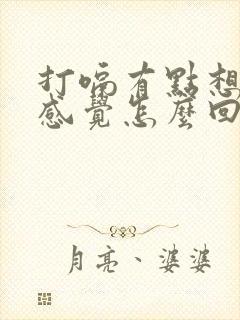 打嗝有點想
感覺怎麼回
月亮、婆婆